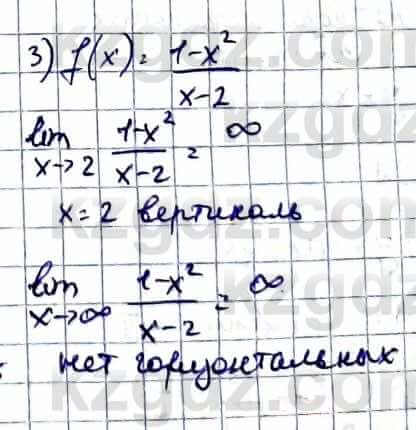 3) f(x) = (1-x²)/(x-2)
lim x→2 (1-x²)/(x-2) = ∞
x = 2 вертикаль
lim x→∞ (1-x²)/(x-2) = ∞
нет горизонтальных